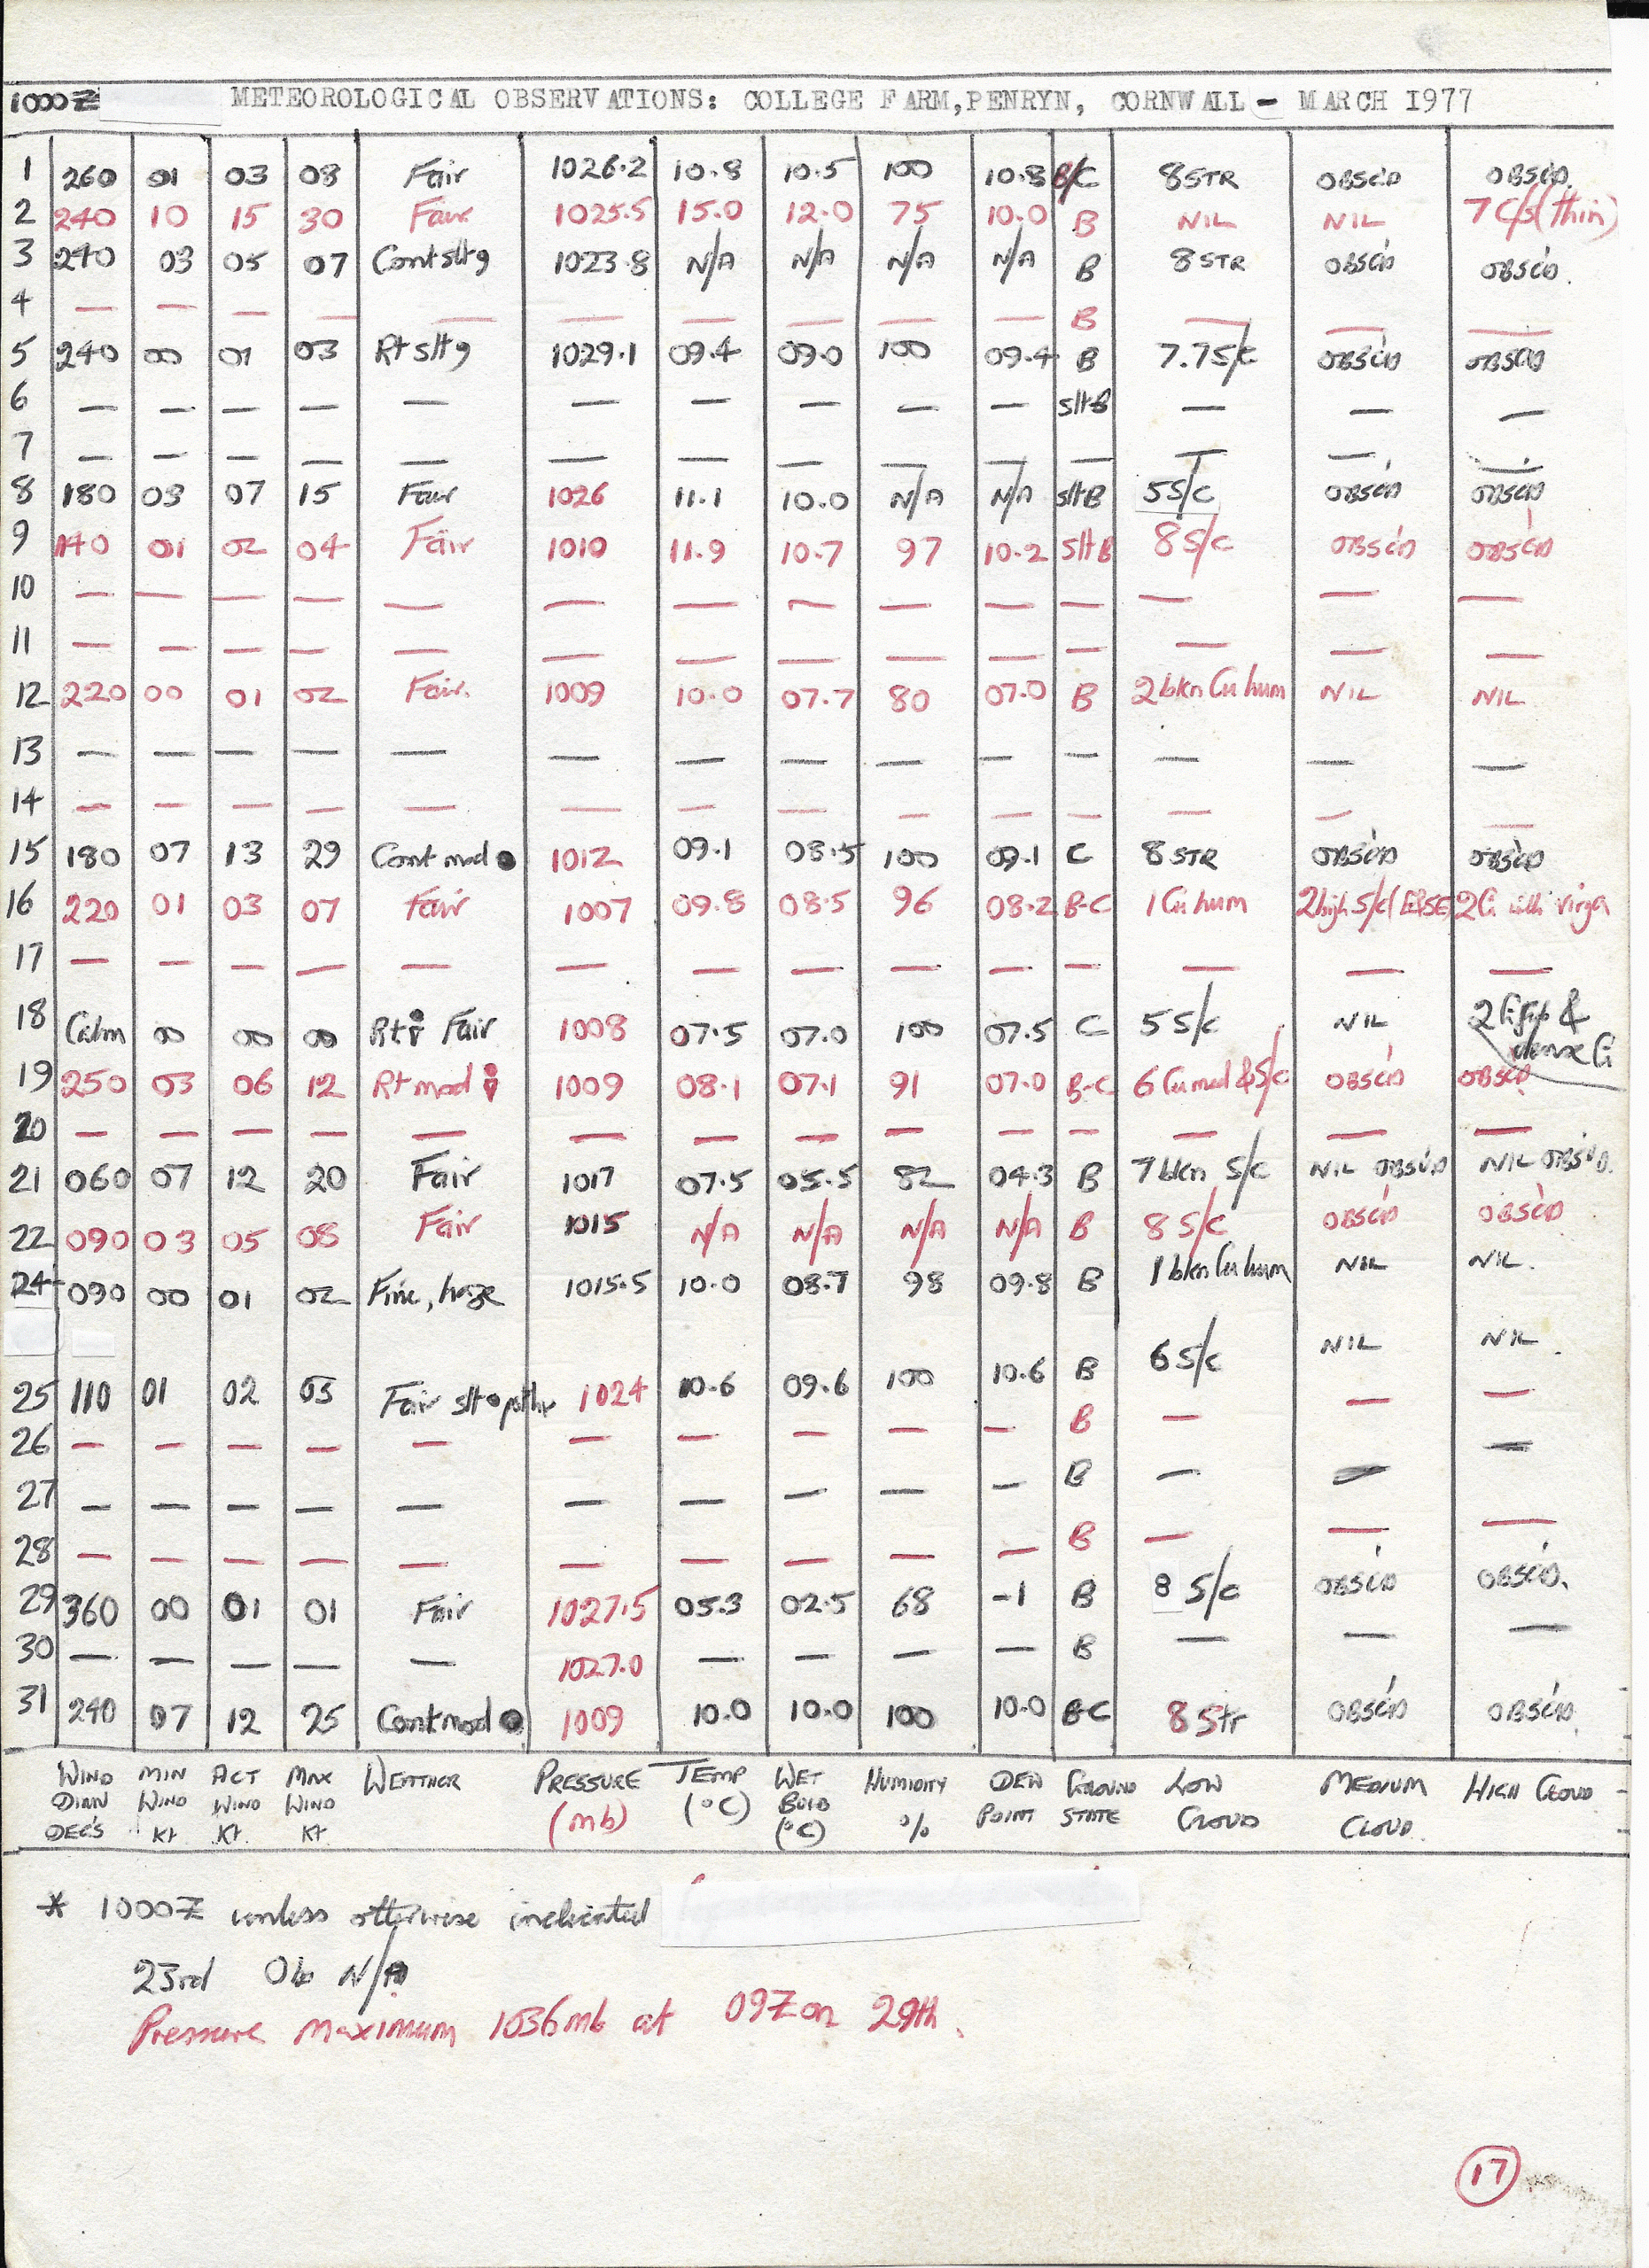 1000Z METEOROLOGICAL OBSERVATIONS: COLLEGE FARM, PENRYN, CORNWALL - MARCH 1977
1 260 01 03 08 Fair 1026.2 10.8 10.5 100 10.8 B/C 8 STR OBSC'D OBSC'D
2 240 10 15 30 Fair 1025.5 15.0 12.0 75 10.0 B NIL NIL 7 C/S (thin)
3 240 03 05 07 Cont slt 9 1023.8 N/A N/A N/A N/A B 8 STR OBSC'D OBSC'D.
4 — — — — — — — — — — B — — —
5 240 00 01 03 Rt slt 9 1029.1 09.4 09.0 100 09.4 B 7.7 S/C OBSC'D OBSC'D
6 — — — — — — — — — — slt B — — —
7 — — — — — — — — — — — — — —
8 180 03 07 15 Fair 1026 11.1 10.0 N/A N/A slt B 5 S/C OBSC'D OBSC'D
9 140 01 02 04 Fair 1010 11.9 10.7 97 10.2 slt B 8 S/C OBSC'D OBSC'D
10 — — — — — — — — — — — — — —
11 — — — — — — — — — — — — — —
12 220 00 01 02 Fair. 1009 10.0 07.7 80 07.0 B 2 bkn Cu hum NIL NIL
13 — — — — — — — — — — — — — —
14 — — — — — — — — — — — — — —
15 180 07 13 29 Cont mod ● 1012 09.1 08.5 100 09.1 C 8 STR OBSC'D OBSC'D
16 220 01 03 07 Fair 1007 09.8 08.5 96 08.2 B-C 1 Cu hum 2 high S/C (E&SE) 2 Ci with virga
17 — — — — — — — — — — — — — —
18 Calm 00 00 00 Rt Fair 1008 07.5 07.0 100 07.5 C 5 S/C NIL 2 Ci & dense Ci
19 250 03 06 12 Rt mod 1009 08.1 07.1 91 07.0 B-C 6 Cu med & S/C OBSC'D OBSC'D
20 — — — — — — — — — — — — — —
21 060 07 12 20 Fair 1017 07.5 05.5 82 04.3 B 7 bkn S/C NIL OBSC'D NIL OBSC'D.
22 090 03 05 08 Fair 1015 N/A N/A N/A N/A B 8 S/C OBSC'D OBSC'D
24 090 00 01 02 Fine, haze 1015.5 10.0 08.7 98 09.8 B 1 bkn Cu hum NIL NIL.
25 110 01 02 03 Fair slt 1024 10.6 09.6 100 10.6 B 6 S/C NIL NIL.
26 — — — — — — — — — — B — — —
27 — — — — — — — — — — B — — —
28 — — — — — — — — — — B — — —
29 360 00 01 01 Fair 1027.5 05.3 02.5 68 -1 B 8 S/C OBSC'D OBSC'D.
30 — — — — — 1027.0 — — — — B — — —
31 240 07 12 25 Cont mod ● 1009 10.0 10.0 100 10.0 B-C 8 Str OBSC'D OBSC'D.
WIND MIN ACT MAX WEATHER PRESSURE TEMP WET HUMIDITY DEW GROUND LOW MEDIUM HIGH CLOUD
DIRN WIND WIND WIND (mb) (°C) BULB % POINT STATE CLOUD CLOUD.
DEG'S Kt Kt. Kt. (°C)
* 1000Z unless otherwise indicated
23rd Ob N/A
Pressure maximum 1036mb at 09Z on 29th.
17